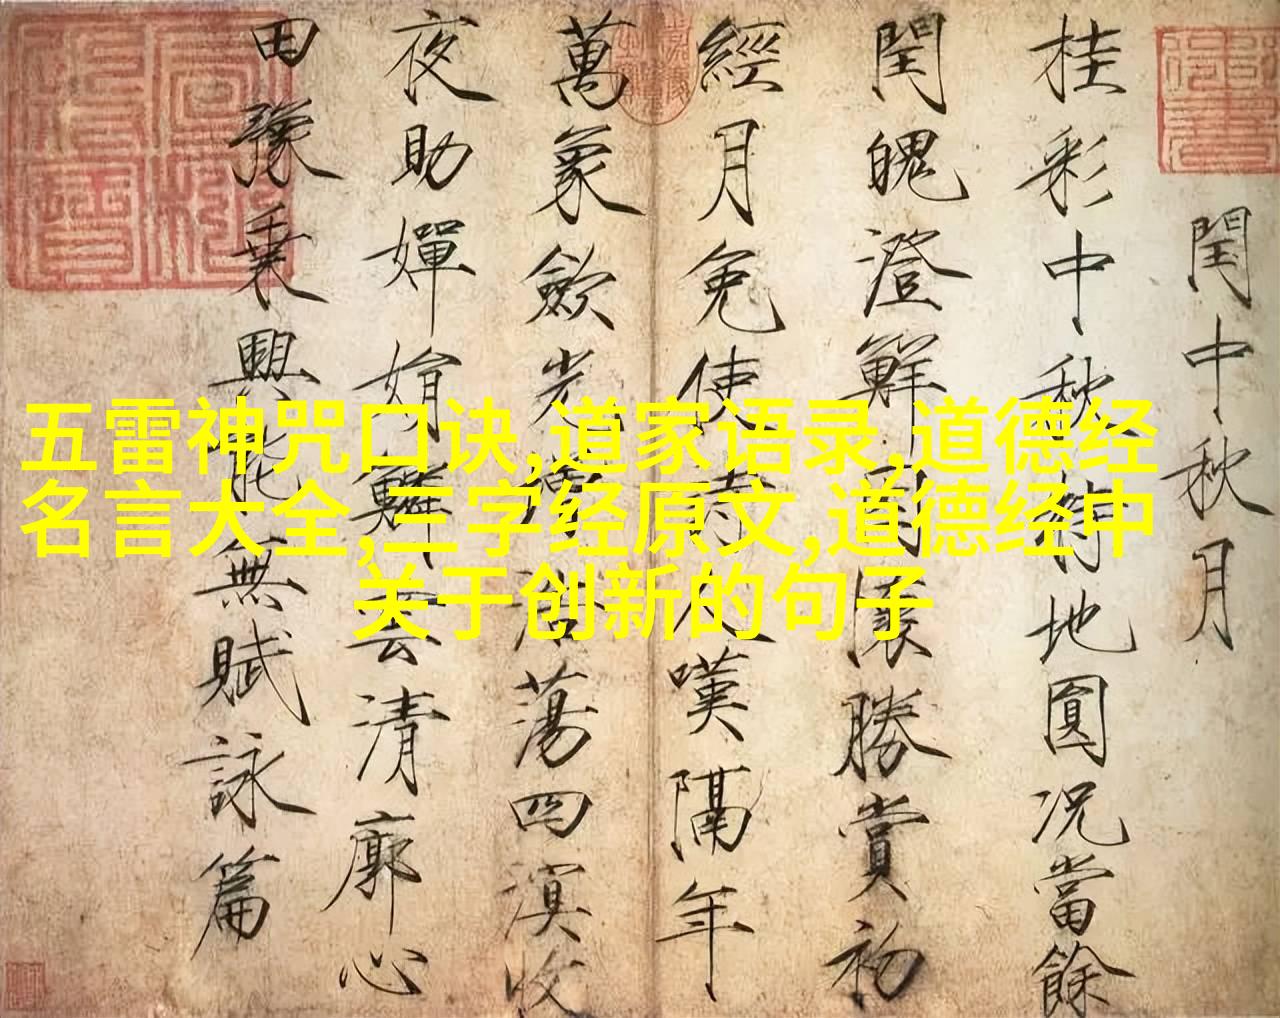 閏中秋月
桂彩中秋特地圓況當餘
閏魄澄鮮因懷勝賞初
經月免使詩人嘆隔年
萬象斂光增浩蕩四溟收
夜助嬋娟鱗雲清廓心
田豫乗興能無賦詠篇
五雷神咒口诀,道家语录,道德经
名言大全,三字经原文,道德经中
关于创新的句子